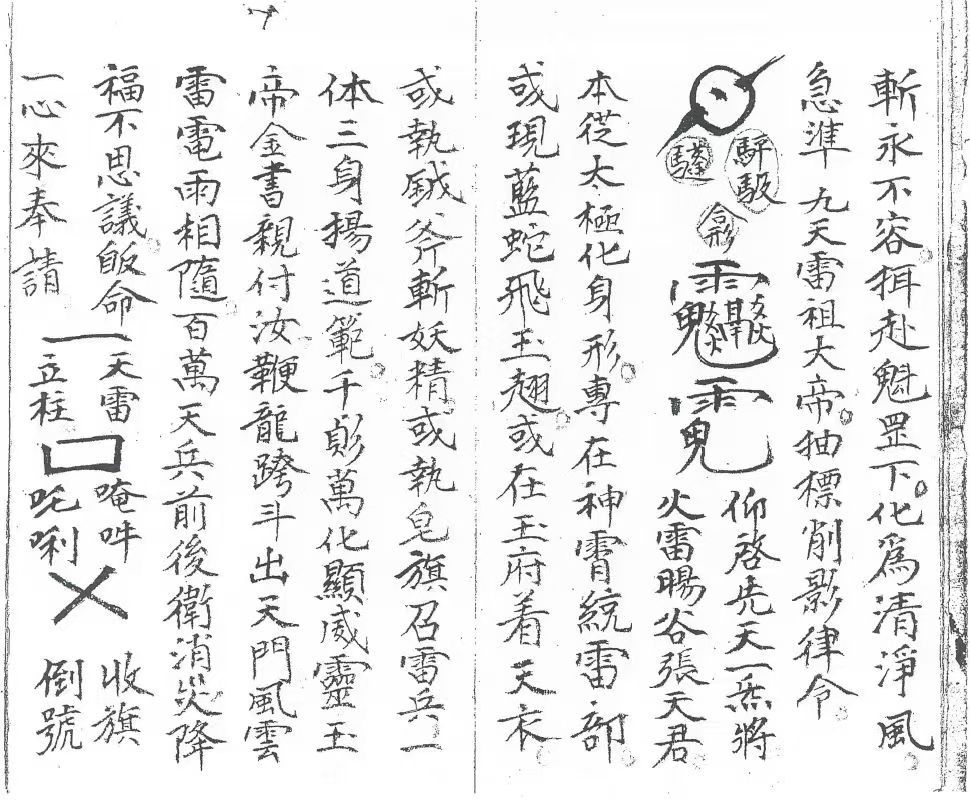 斬永不容拒赴魁罡下化為清淨風
急準九天雷祖大帝抽標削影律令
仰啓先天一炁將
火雷暘谷張天君
本從太極化身形專在神霄統雷部
或現藍蛇飛玉翅或在玉府着天衣
或執鉞斧斬妖精或執皂旗召雷兵一
体三身揚道範千彩萬化顯威靈玉
帝金書親付汝鞭龍跨斗出天門風雲
雷電雨相隨百萬天兵前後衛消災降
福不思議皈命
一心來奉請
一天雷
立柱
唵吽
吒唎
收旗
倒號